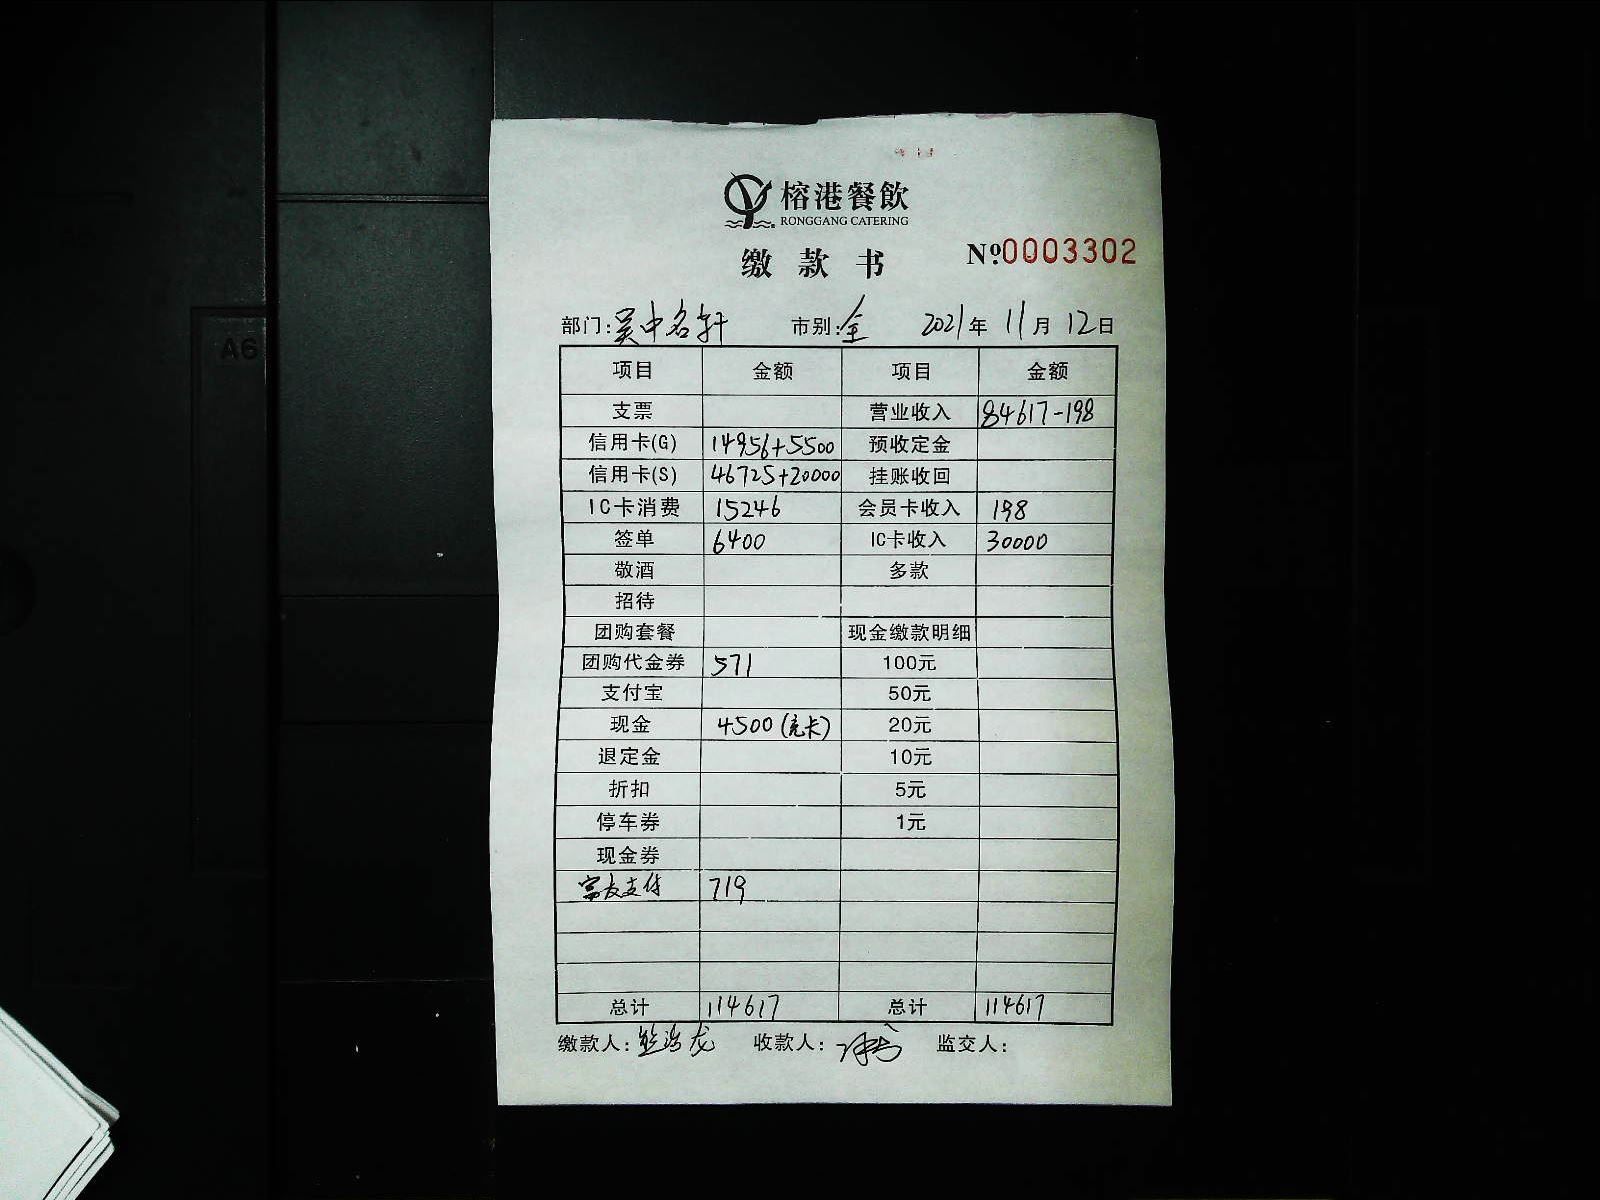 榕港餐飲
RONGGANG CATERING
缴款书 №0003302
部门:吴中名轩 市别:全 2021年11月12日
项目 金额 项目 金额
支票 营业收入 84617-198
信用卡(G) 14956+5500 预收定金
信用卡(S) 46725+20000 挂账收回
IC卡消费 15246 会员卡收入 198
签单 6400 IC卡收入 30000
敬酒 多款
招待
团购套餐 现金缴款明细
团购代金券 571 100元
支付宝 50元
现金 4500(充卡) 20元
退定金 10元
折扣 5元
停车券 1元
现金券
富友支付 719
总计 114617 总计 114617
缴款人: 收款人: 监交人:
A6